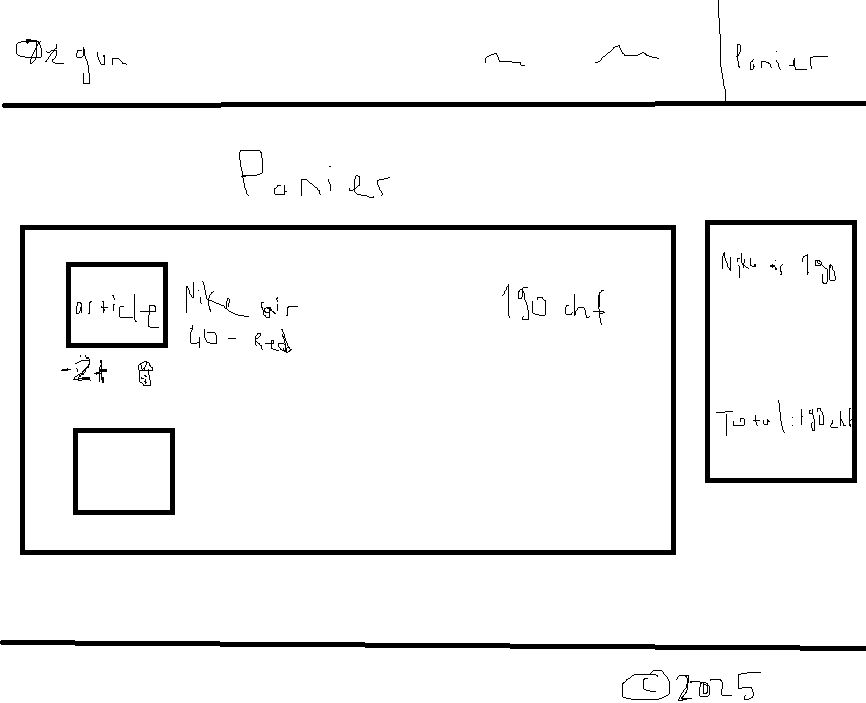 Ozgun
Panier
Panier
article
Nike air
40 - Red
190 chf
-2+
Nike air 190
Total: 190 chf
© 2025